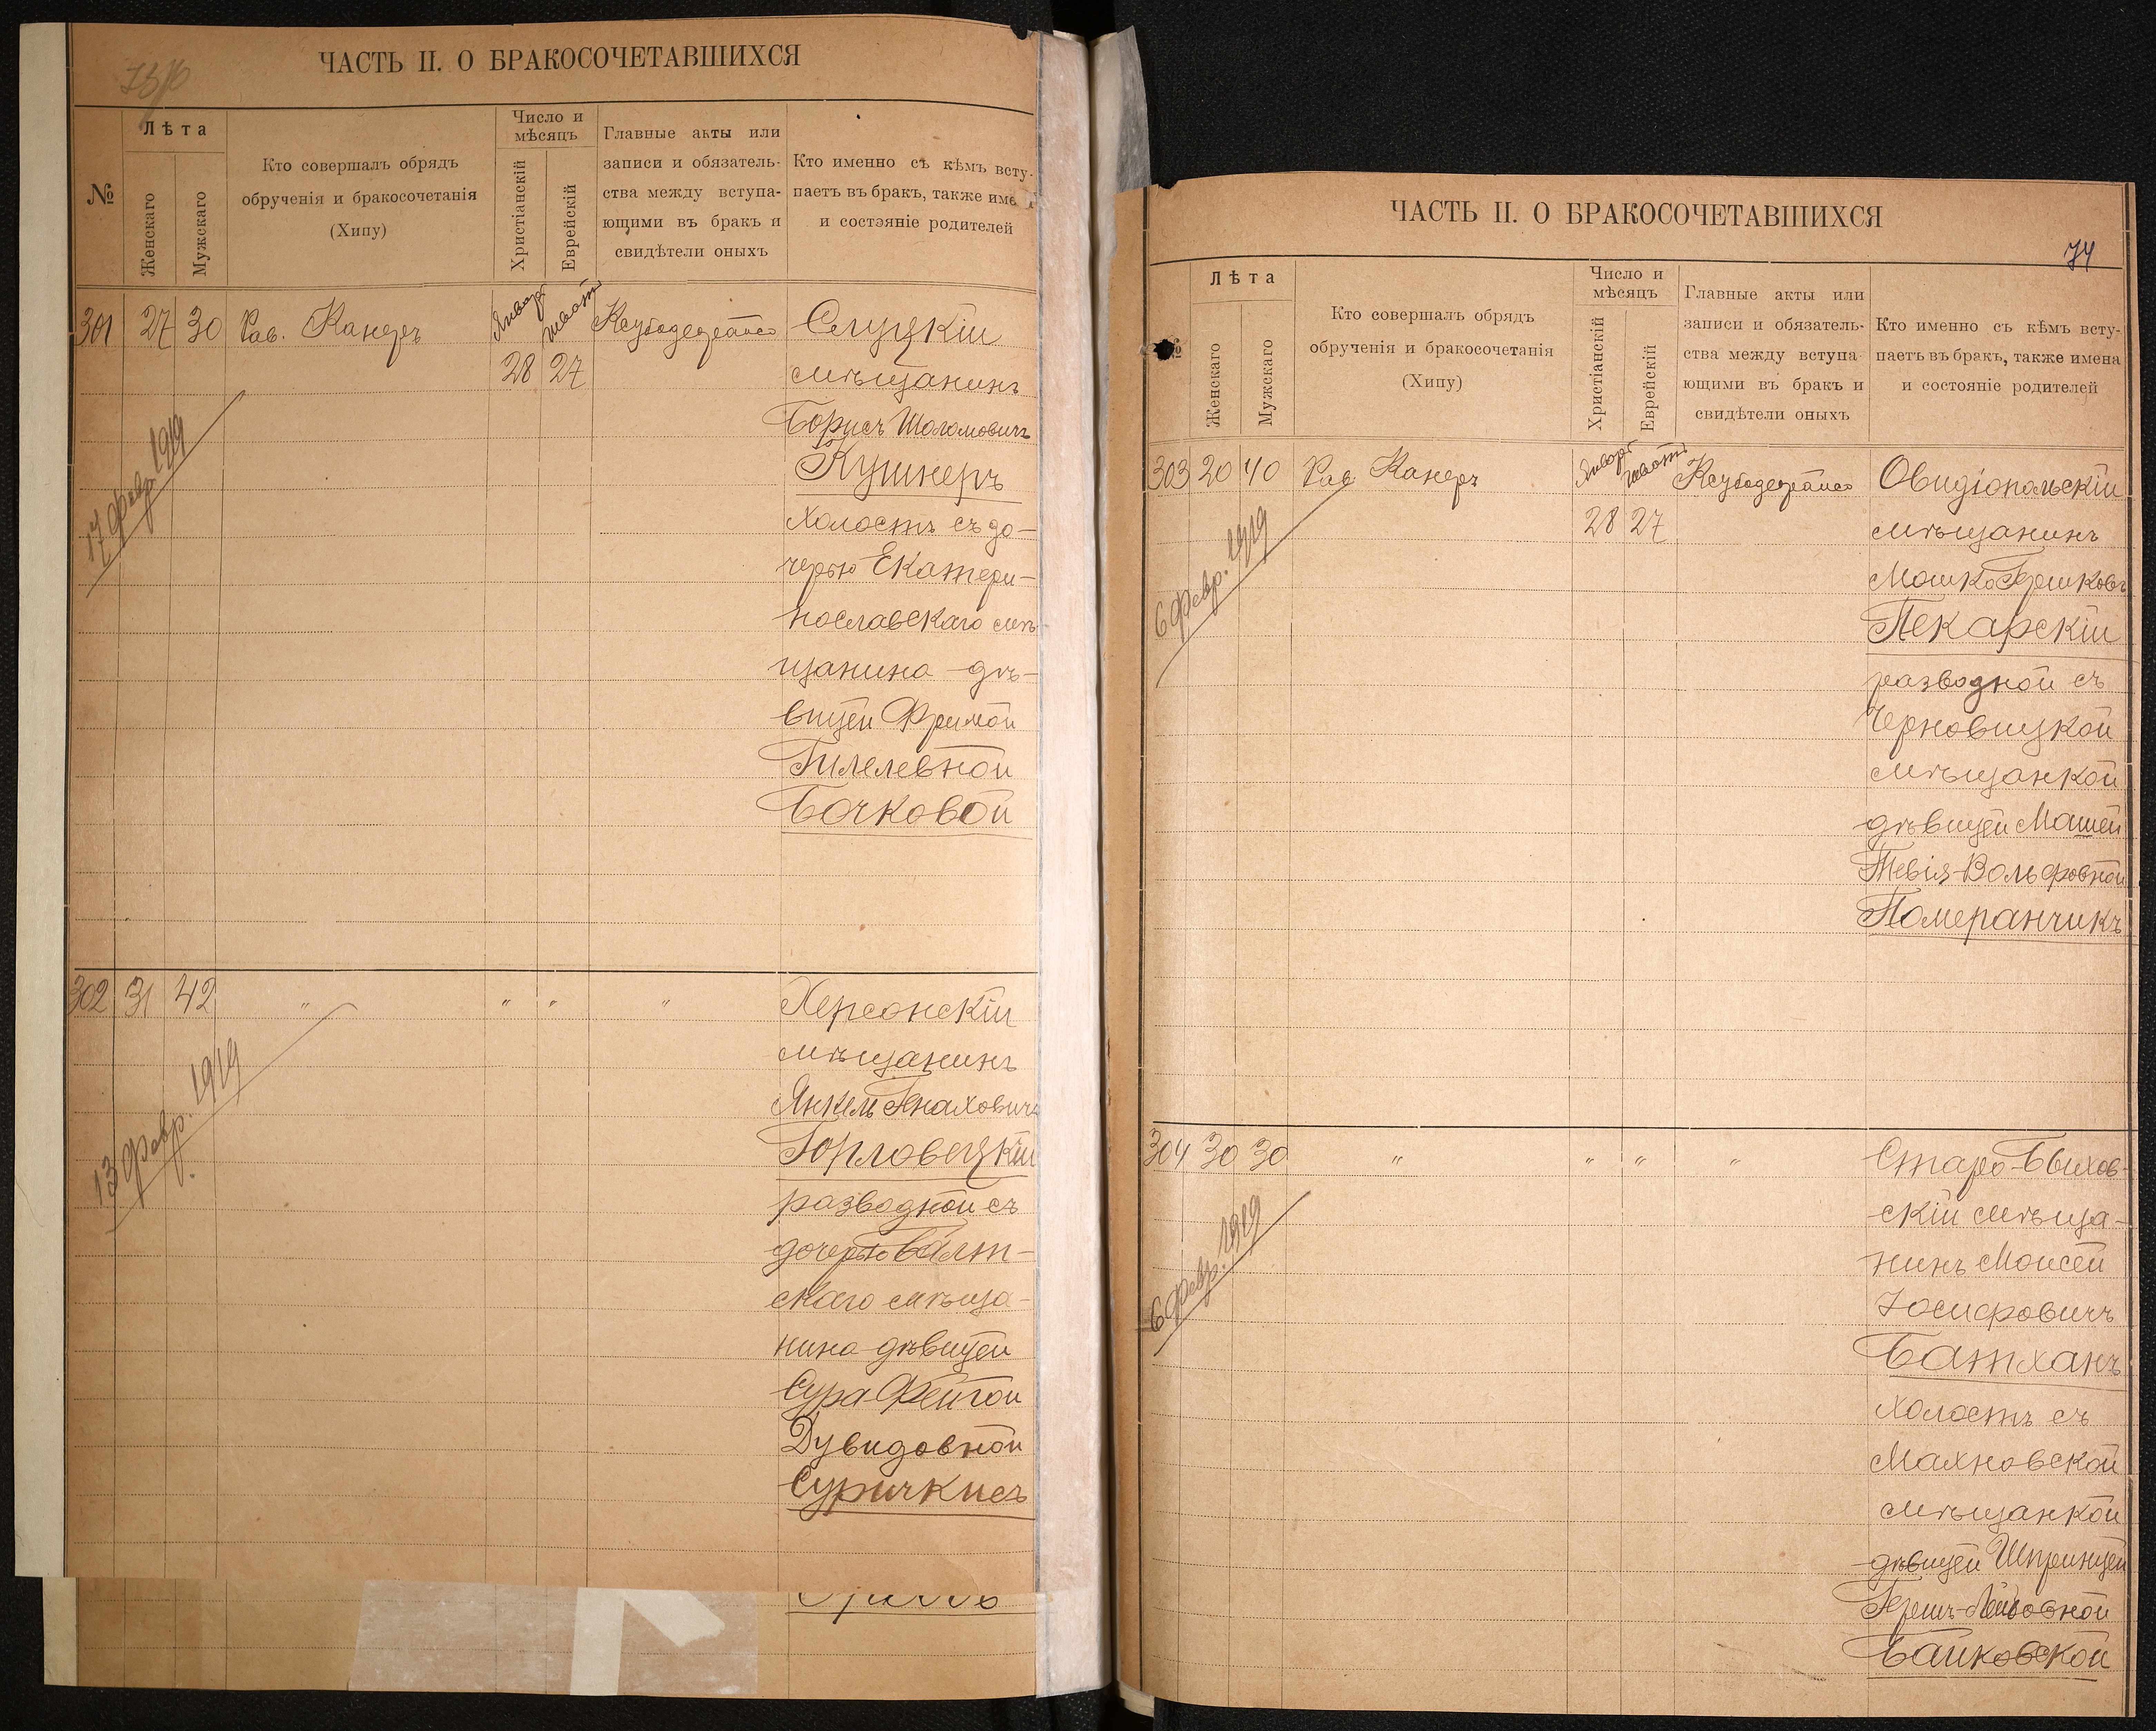 ЧАСТЬ II. О БРАКОСОЧЕТАВШИХСЯ
№
Лѣта
Женскаго
Мужскаго
Кто совершалъ обрядъ
обрученія и бракосочетанія
(Хипу)
Число и
мѣсяцъ
Христіанскій
Еврейскій
Главные акты или
записи и обязатель-
ства между вступа-
ющими въ бракъ и
свидѣтели оныхъ
Кто именно съ кѣмъ всту-
паетъ въ бракъ, также име
и состояніе родителей
301 27 30 Рав. Канеръ Январ Шват
28 27
17 февр. 1919
Слуцкій
мѣщанинъ
Борисъ Шоломовичъ
Кушнеръ
холостъ съ до-
черью Екатери-
нославскаго мѣ-
щанина - дѣ-
вицей Фримой
Гилелевной
Бочковой
302 31 42 " " " "
13 февр. 1919
Херсонскій
мѣщанинъ
Янкель Генаховичъ
Горловецкій
разводной съ
дочерью Балт-
скаго мѣща-
нина дѣвицей
Сура-Фейгой
Дувидовной
Суричкисъ
ЧАСТЬ II. О БРАКОСОЧЕТАВШИХСЯ
74
№
Лѣта
Женскаго
Мужскаго
Кто совершалъ обрядъ
обрученія и бракосочетанія
(Хипу)
Число и
мѣсяцъ
Христіанскій
Еврейскій
Главные акты или
записи и обязатель-
ства между вступа-
ющими въ бракъ и
свидѣтели оныхъ
Кто именно съ кѣмъ всту-
паетъ въ бракъ, также имена
и состояніе родителей
303 20 40 Рав Канеръ Январ Шват
28 27
6 февр. 1919
Овидіопольскій
мѣщанинъ
Мошко Гершковъ
Пекарскій
разводной съ
Черновицкой
мѣщанкой
дѣвицей Машей
Тевія-Вольфовной
Померанчикъ
304 30 30 " " " "
6 февр. 1919
Старо-Быхов-
скій мѣща-
нинъ Моисей
Іосифовичъ
Батханъ
холостъ съ
Махновской
мѣщанкой
дѣвицей Шпринцей
Гершъ-Лейбовной
Байковской